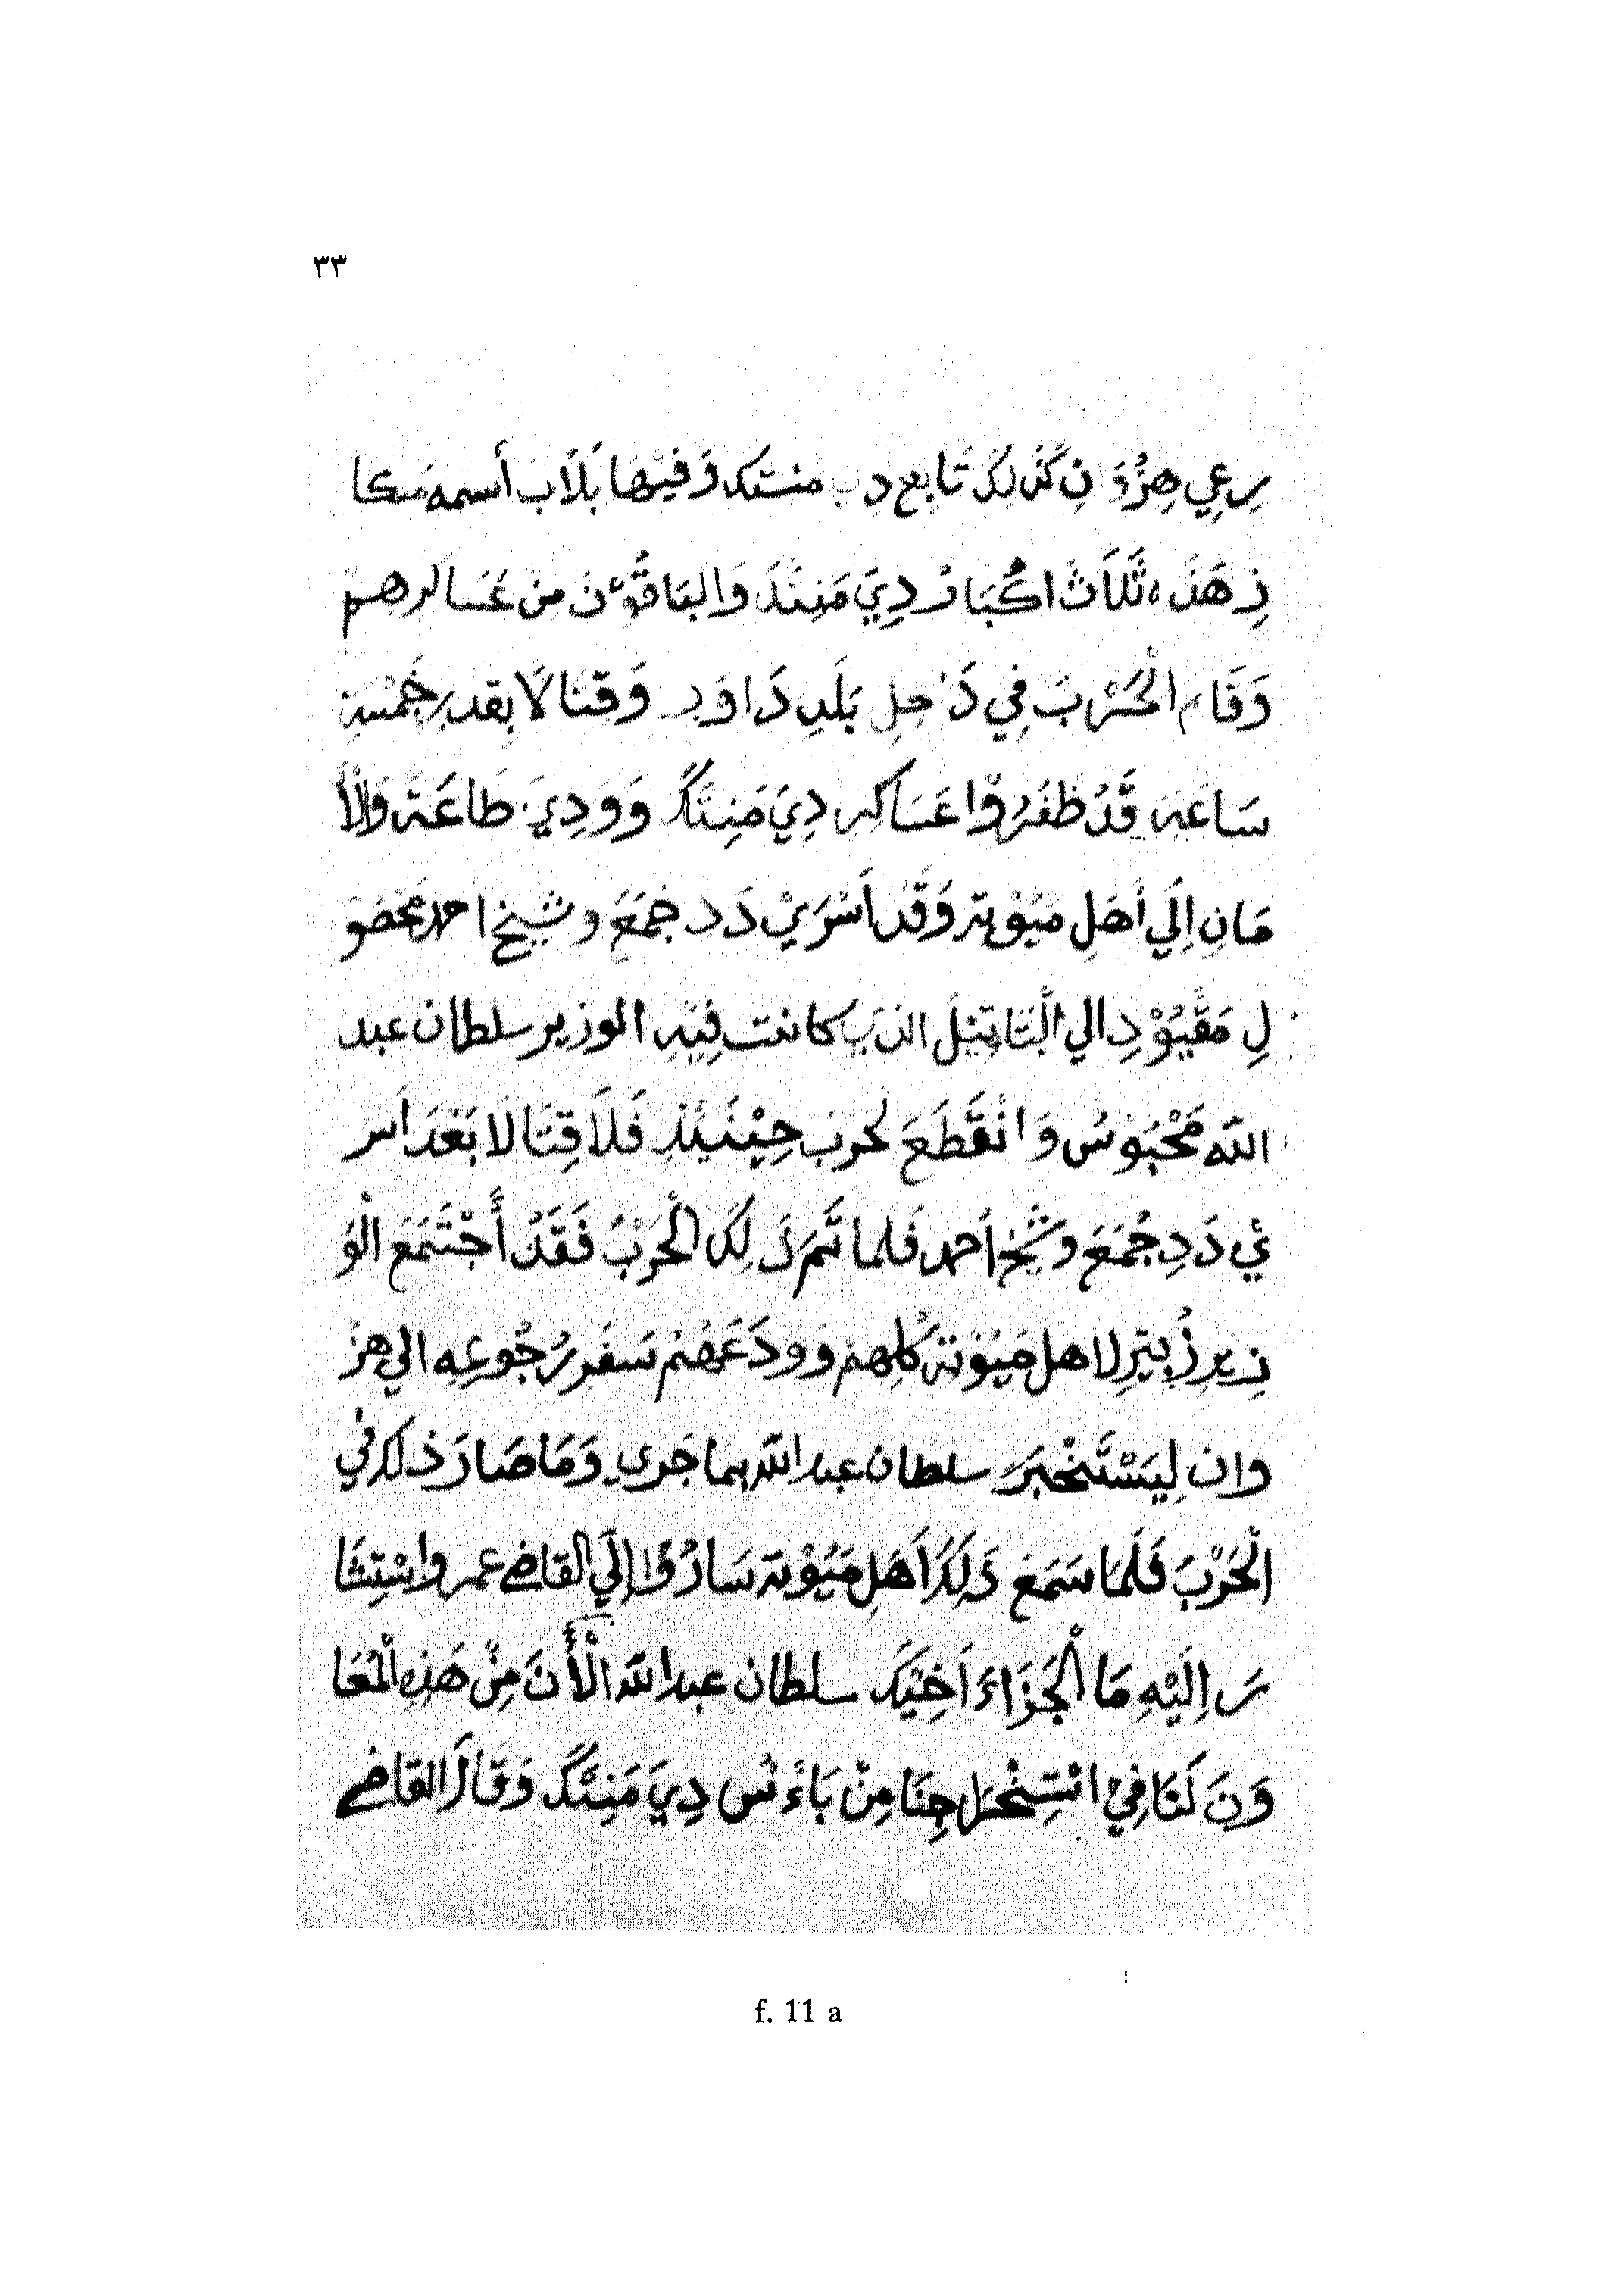 ٣٣
رِعِي هِزُوَ نِ كَذَلِكَ تَابِع دِب منتك وَفِيْهَا بَلَابَ أسمه مكا
ذِهَذَه ثَلَاثَ اكُبَارْ دِيَ مَنِتَكَ وَالبَاقُوْنَ مِنْ عَسَاكرهم
وَقَام الْحَرْبَ فِي دَخِلِ بَلَدِ دَاوَدِ وَقتَالَا بِقدرِ خَمْسَةِ
سَاعَة قَدْ ظَفَرُوْا عَسَاكِر دِيَ مَنِتَكَ وَوَدِيَ طَاعَةَ وَالْأَ
مَانِ إِلَي أَهَلِ مَيُوْتِه وَقَد اَسْرَيْ دَدِ جُمَعَ وشيخ احمد مخضو
لِ مَقْيُوْدِ الي الْبَتَاتِيْلَ الذي كانت فِيْهِ الوزير سلطان عبد
الله مَحْبَوْسُ وَانْقَطَعَ لحرب حِيْنَئِذِ فَلَا قِتَالَا بَعْدَ اَسر
يْ دَدِ جُمَعَ وشَيْخ اَحمد فَلما تَم ذَلِكَ الْحَرْبُ فَقَدْ أَجْتَمَعَ الْوَ
زِيْرِ زُبيْرِ لاهل مَيُوْتَة كُلِهِمْ وَودَعَهُمْ سَفَر رُجُوعِه الي هِزْ
وان لِيَسْتَخْبَرَ سلطان عبد الله بِما جَرى وَمَا صَارَ ذلك في
الْحَرْبَ فَلَمَا سَمَعَ ذَلِكَ اَهَلِ مَيُوْتة سَارُوْا إلَي القاضے عمر واسْتِشَا
رَ إِلَيْهِ مَا الْجَزَاءَ اَخِيْكَ سلطان عبد الله الْأَنَ مِنْ هَذِه الْمُعَا
وَنَ لَنَا فِيْ انْتِخْرَاجِنَا مِنْ بَاءْسُ دِيَ مَنِتَكَ وَقَالَ القاضے
f. 11 a